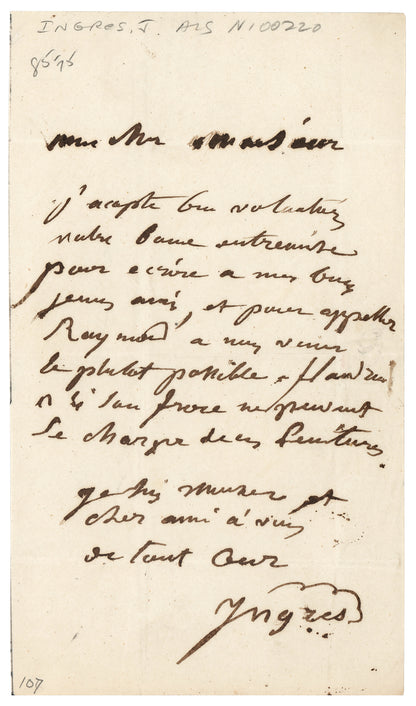 INGRES. J. ALS N100220
8575
mon cher monsieur
j'acepte bien volontiers
votre bonne entremise
pour ecrire a mes bons
jeunes amis, et pour appeller
Raymond a nous venir
le plutot possible. flandrin
ni son frere ne peuvent
se charger de ces Peintures.
je suis Monsieur et
cher ami à vous
de tout Cœur
Ingres
107